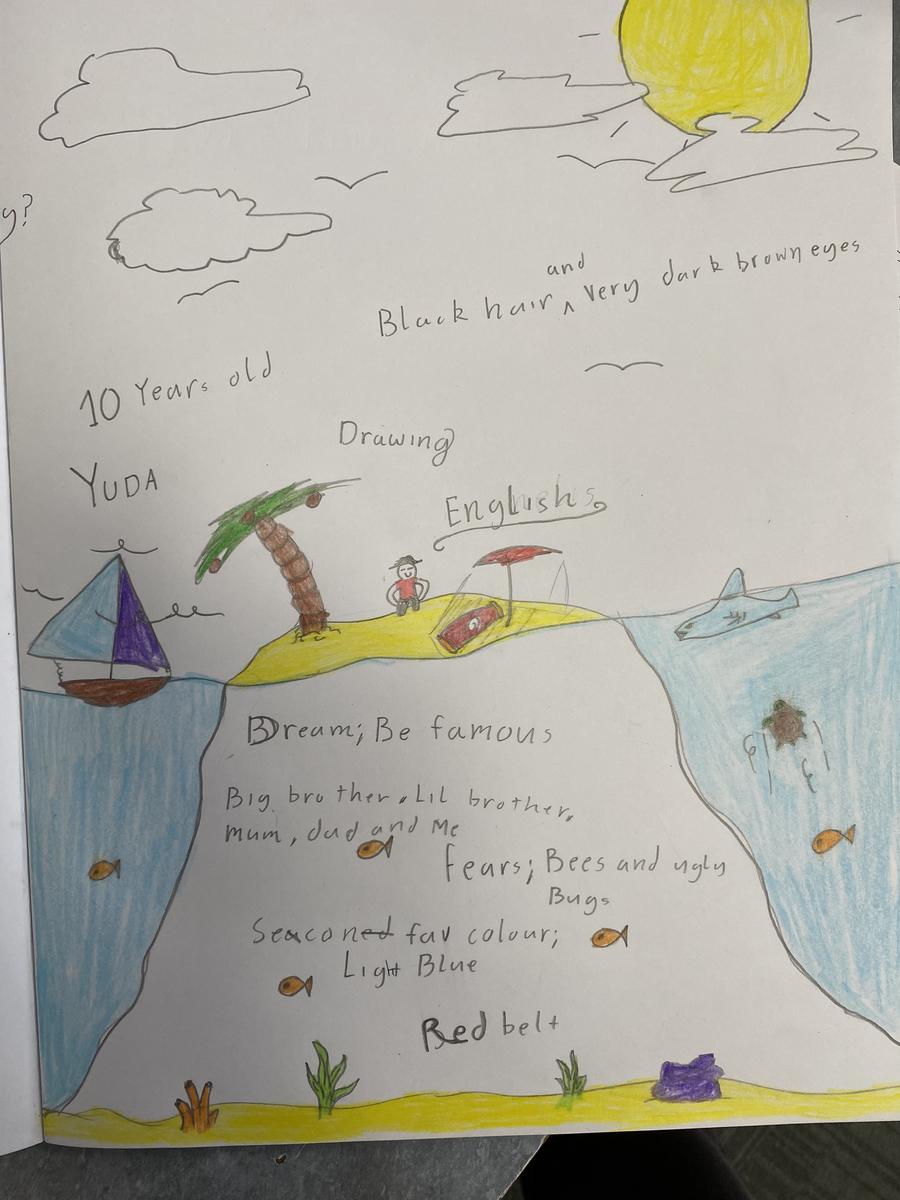 y?
and
Black hair ^ very dark brown eyes
10 Years old
Drawing
YUDA
English
Dream; Be famous
Big brother, Lil brother,
mum, dad and Me
fears; Bees and ugly
Bugs
Seaconed fav colour;
Light Blue
Red belt